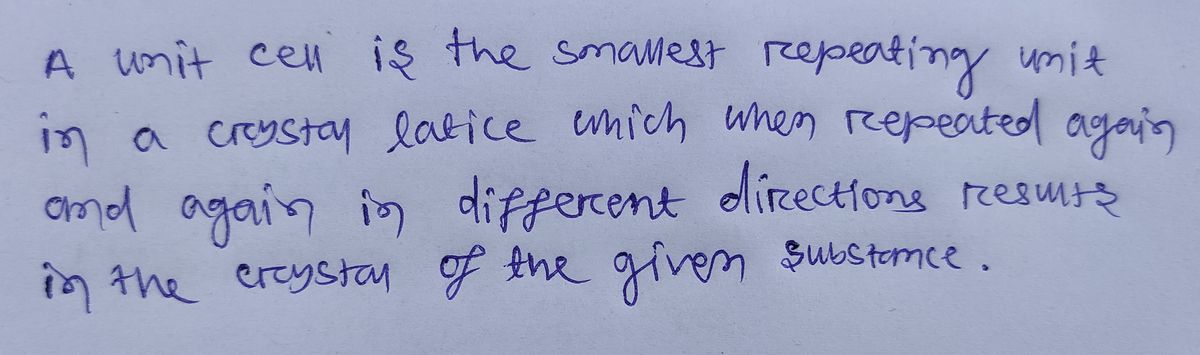 A unit cell is the smallest repeating unit
in a crystal latice which when repeated again
and again in different directions results
in the crystal of the given substance.